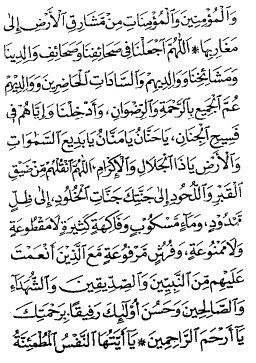 وَالْمُؤْمِنِينَ وَالْمُؤْمِنَاتِ مِنْ مَشَارِقِ الْأَرْضِ إِلَى
مَغَارِبِهَا * اَللّٰهُمَّ اجْعَلْنَا فِي صَحَائِفِنَا وَصَحَائِفِ وَالِدِينَا
وَمَشَائِخِنَا وَوَالِدِيهِمْ وَالسَّادَاتِ الْحَاضِرِينَ وَوَالِدِيْهِمْ
عُمَّ الْجَمِيعَ بِالرَّحْمَةِ وَالرِّضْوَانِ، وَأَدْخِلْنَا وَإِيَّاهُمْ فِي
فَسِيحِ الْجِنَانِ، يَاحَنَّانُ يَامَنَّانُ يَابَدِيعَ السَّمٰوَاتِ
وَالْأَرْضِ يَاذَا الْجَلَالِ وَالْإِكْرَامِ، اَللّٰهُمَّ انْقُلْهُمْ مِنْ ضِيْقِ
الْقَبْرِ وَاللُّحُودِ إِلَى جَنَّتِكَ جَنَّاتِ الْخُلُودِ، إِلَى ظِلٍّ
مَمْدُودٍ، وَمَاءٍ مَسْكُوبٍ وَفَاكِهَةٍ كَثِيرَةٍ لَامَقْطُوعَةٍ
وَلَامَمْنُوعَةٍ، وَفُرُشٍ مَرْفُوعَةٍ مَعَ الَّذِينَ أَنْعَمْتَ
عَلَيْهِمْ مِنَ النَّبِيِّينَ وَالصِّدِّيقِينَ وَالشُّهَدَاءِ
وَالصَّالِحِينَ وَحَسُنَ أُولٰئِكَ رَفِيقًا، بِرَحْمَتِكَ
يَاأَرْحَمَ الرَّاحِمِينَ * يَاأَيَّتُهَا النَّفْسُ الْمُطْمَئِنَّةُ